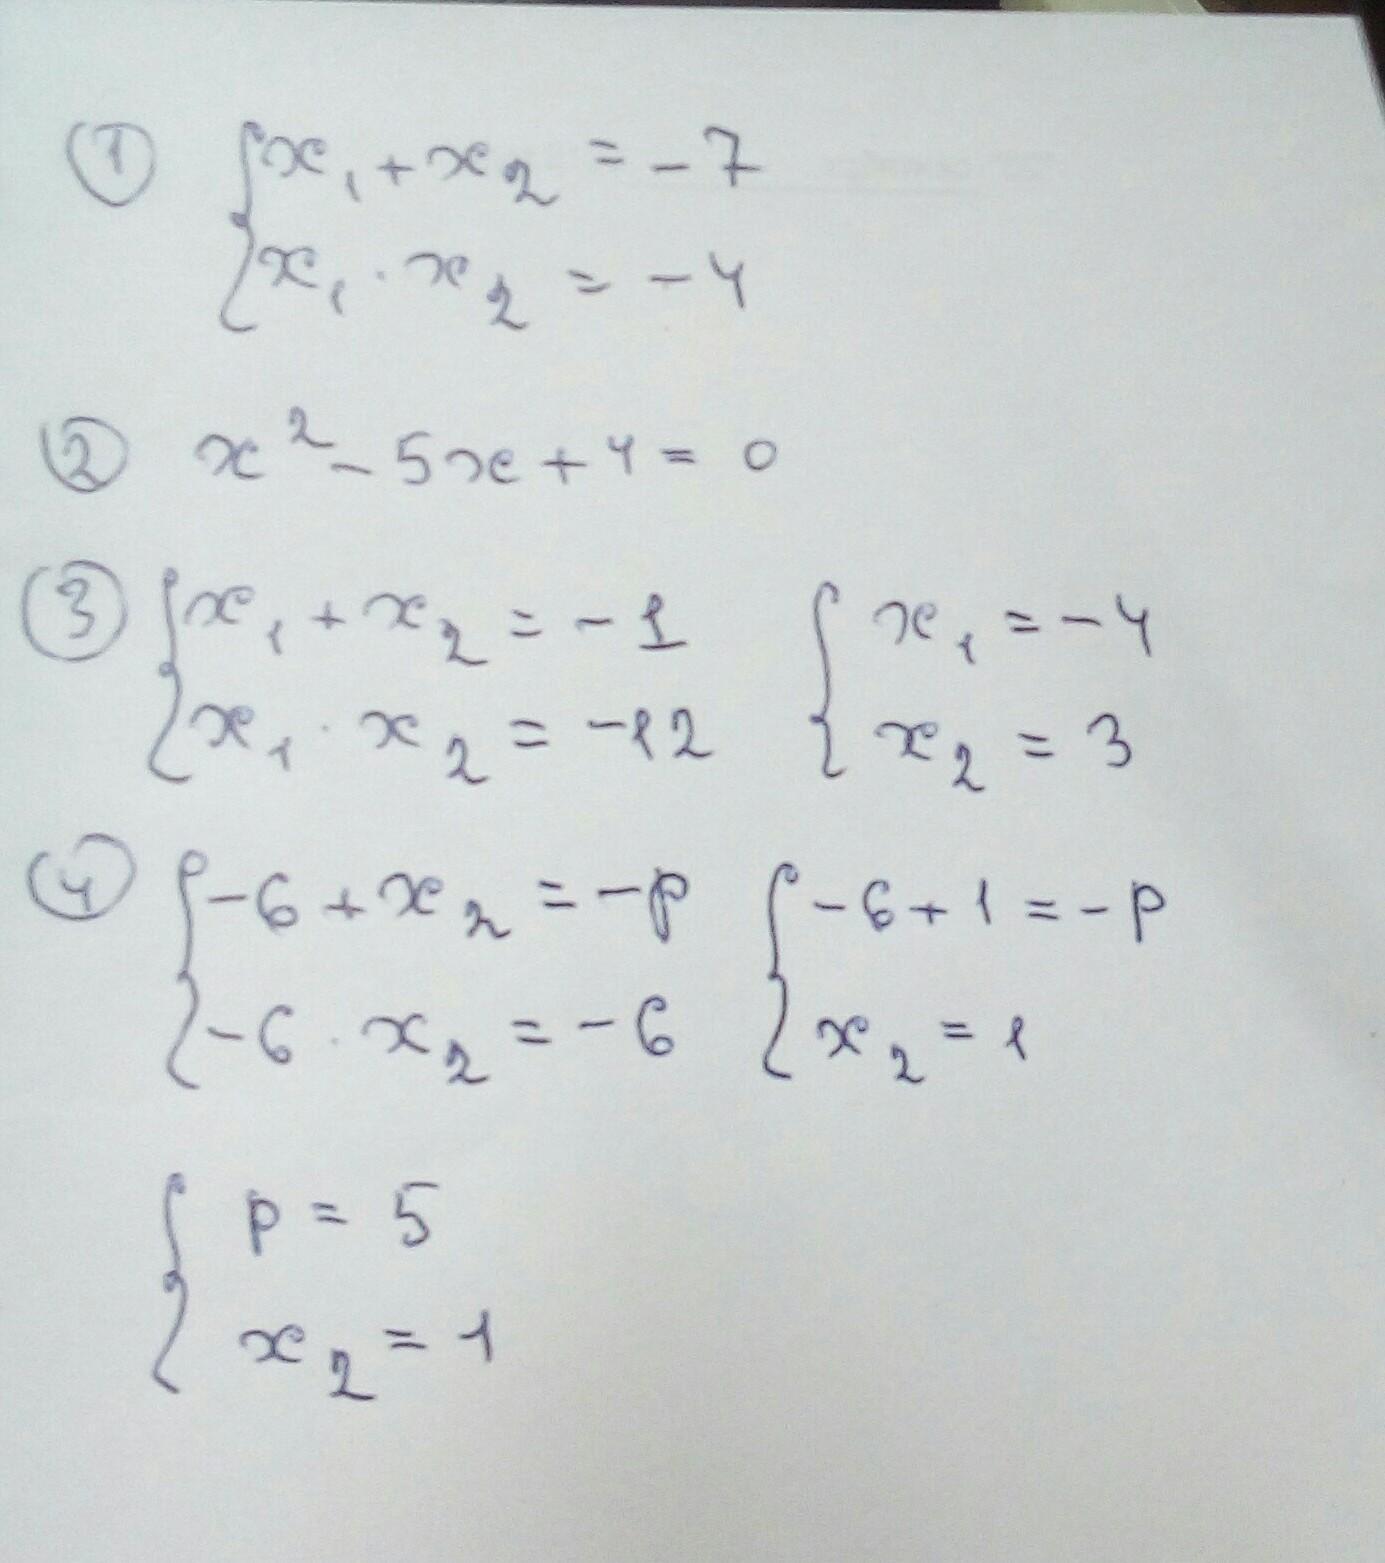 ① { x₁ + x₂ = -7
x₁ · x₂ = -4
② x² - 5x + 4 = 0
③ { x₁ + x₂ = -1 { x₁ = -4
x₁ · x₂ = -12 x₂ = 3
④ { -6 + x₂ = -p { -6 + 1 = -p
-6 · x₂ = -6 x₂ = 1
{ p = 5
x₂ = 1